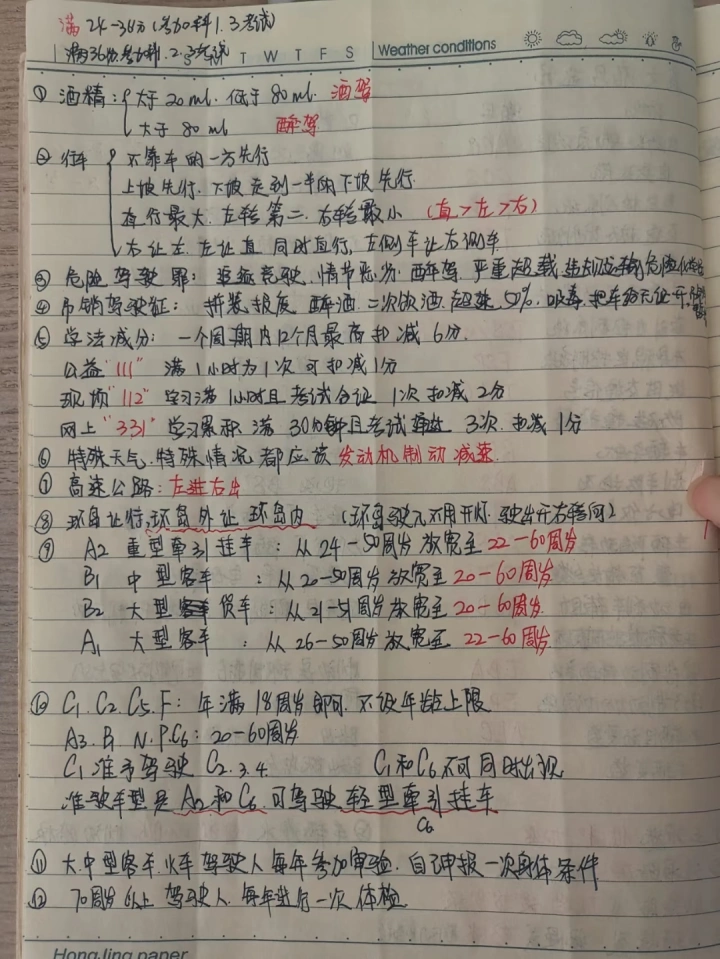 满 24-36分(参加科1.3考试)
满36分.参加科1.2.3考试 T W T F S Weather conditions
① 酒精:{大于20ml.低于80ml. 酒驾
大于80ml 醉驾
② 行车 { 不靠车的一方先行
上坡先行.下坡走到一半的下坡先行.
直行最大.左转第二.右转最小 (直>左>右)
右让左.左让直 同时直行,左侧车让右侧车.
③ 危险驾驶罪:追逐竞驶.情节恶劣.醉驾.严重超载.
④ 吊销驾驶证:拼装.报废 醉酒.二次饮酒.超速50%.吸毒.把车给无证开.
⑤ 学法减分:一个周期内12个月最高扣减6分.
公益"111" 满1小时为1次可扣减1分
现场"112" 学习满1小时且考试合证 1次扣减2分
网上"331" 学习累积满30分钟且考试 3次.扣减1分
⑥ 特殊天气.特殊情况都应该发动机制动减速.
⑦ 高速公路:左进右出
⑧ 环岛让行,环岛外让环岛内 (环岛驶入不用开灯.驶出开右转向)
⑨ A2 重型牵引挂车:从24-50周岁放宽至22-60周岁
B1 中型客车:从20-50周岁放宽至20-60周岁
B2 大型货车:从21-51周岁放宽至20-60周岁.
A1 大型客车:从26-50周岁放宽至22-60周岁
⑩ C1.C2.C5.F:年满18周岁即可.不设年龄上限
A3.B1.N.P.C6:20-60周岁
C1准予驾驶C2.3.4. C1和C6不可同时出现
准驾车型是A2和C6.可驾驶轻型牵引挂车
C6
⑪ 大.中型客车.火车驾驶人每年参加审验.自己申报一次身体条件
⑫ 70周岁以上驾驶人.每年进行一次体检
HongJing paper